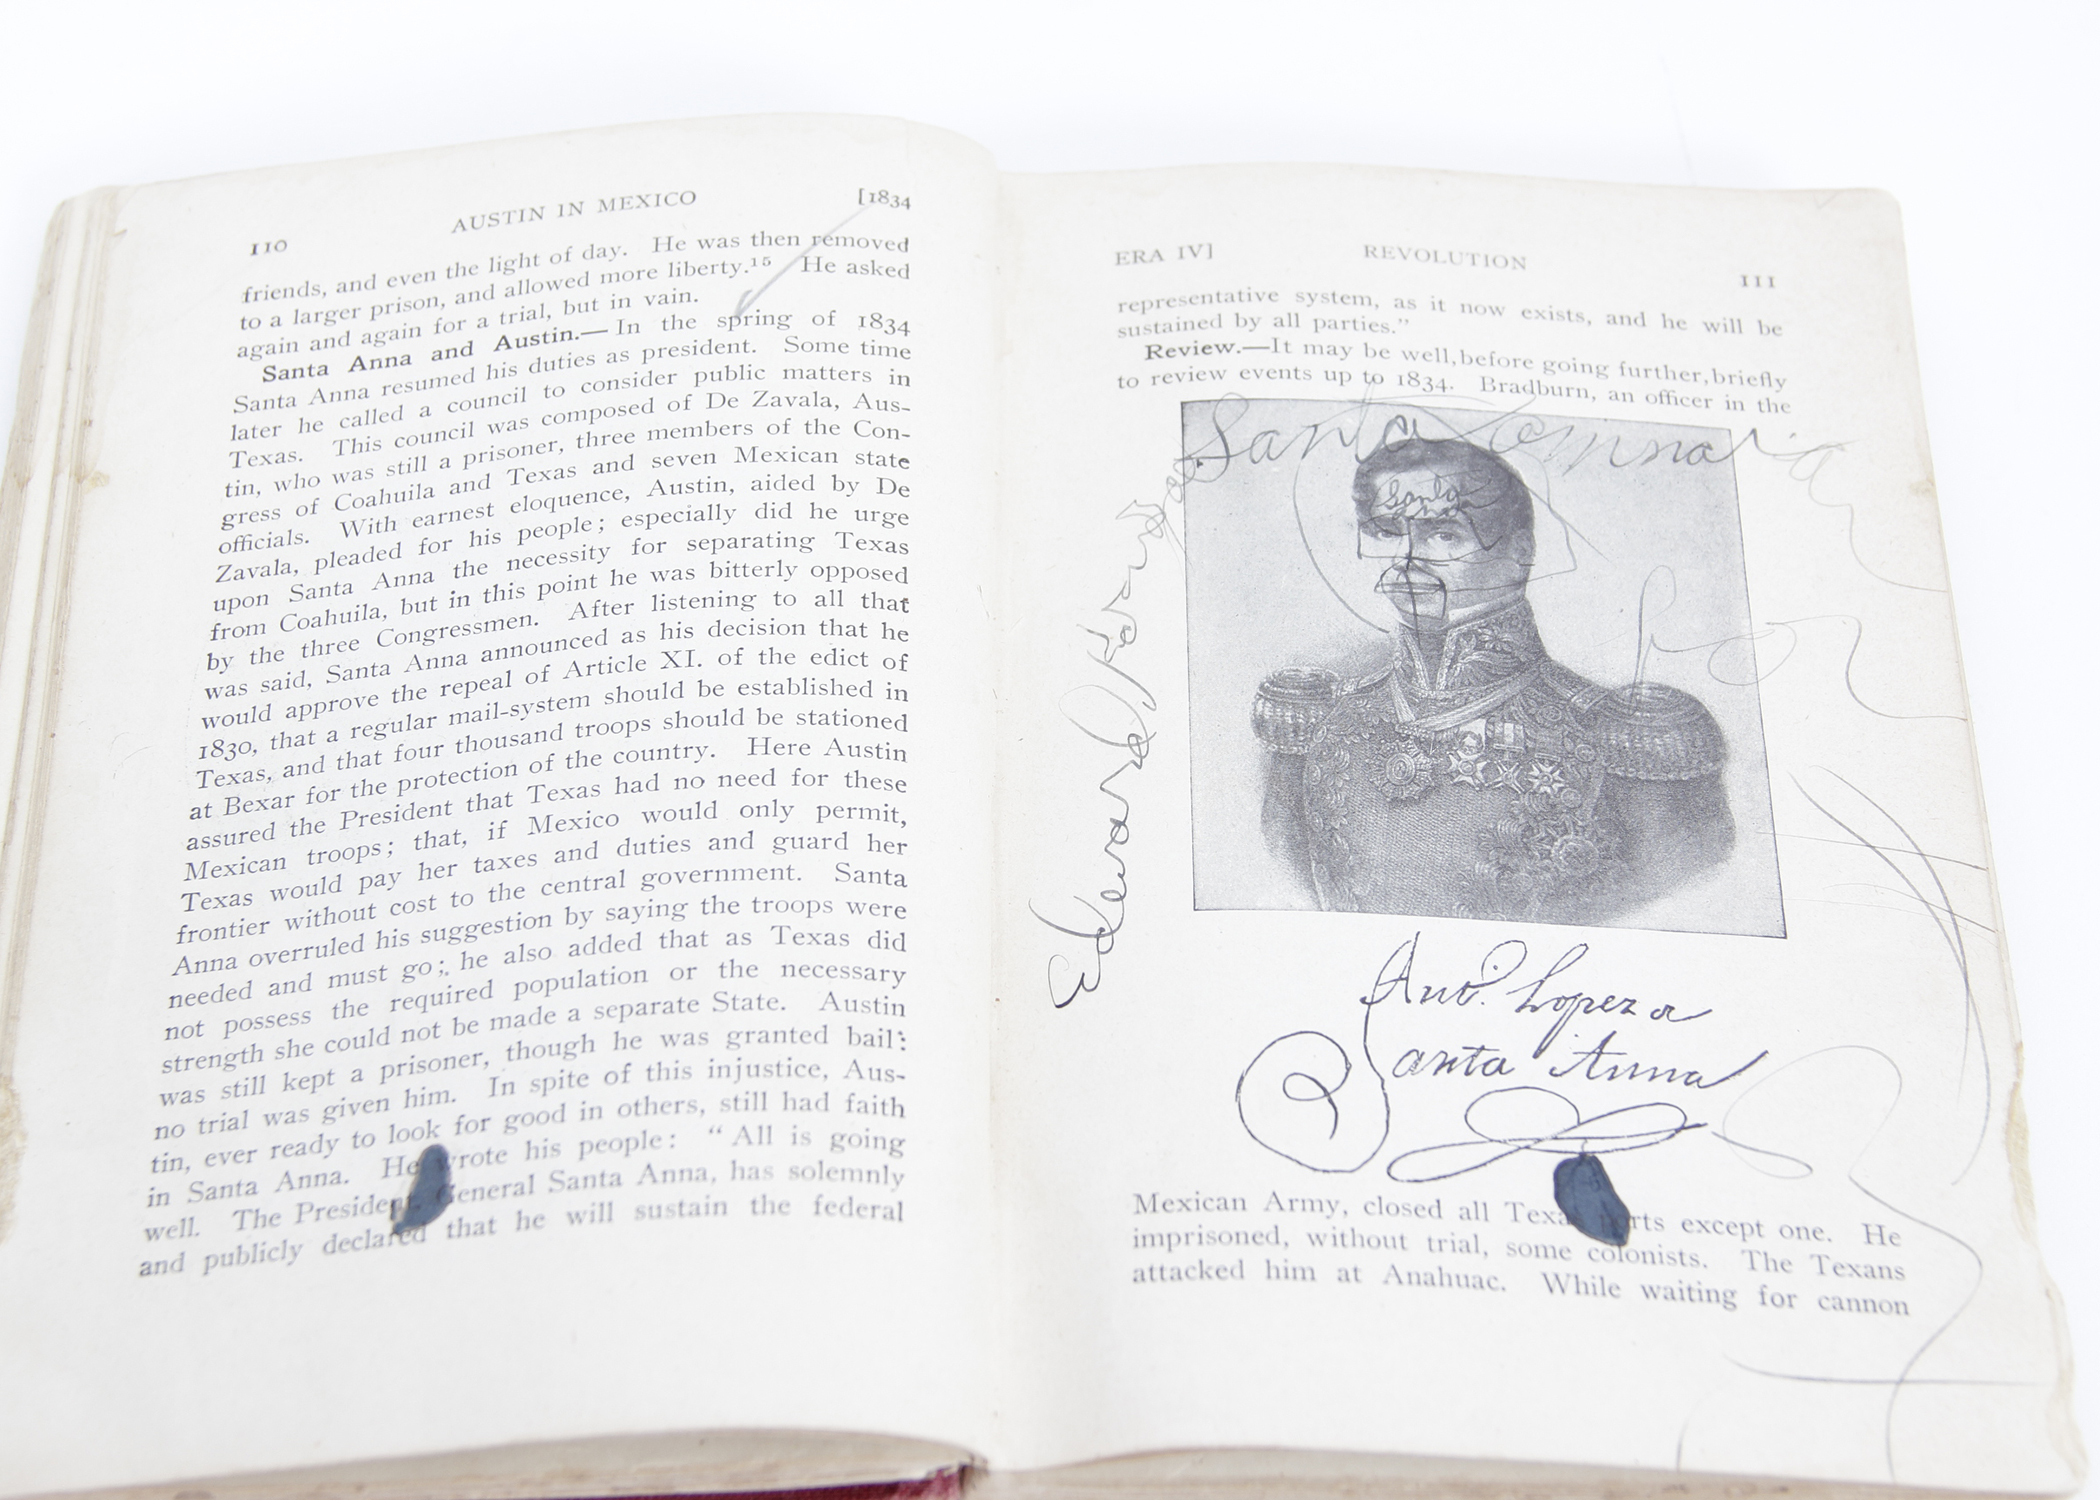 110 AUSTIN IN MEXICO [1834
friends, and even the light of day. He was then removed
to a larger prison, and allowed more liberty.¹⁵ He asked
again and again for a trial, but in vain.
Santa Anna and Austin.—In the spring of 1834
Santa Anna resumed his duties as president. Some time
later he called a council to consider public matters in
Texas. This council was composed of De Zavala, Aus-
tin, who was still a prisoner, three members of the Con-
gress of Coahuila and Texas and seven Mexican state
officials. With earnest eloquence, Austin, aided by De
Zavala, pleaded for his people; especially did he urge
upon Santa Anna the necessity for separating Texas
from Coahuila, but in this point he was bitterly opposed
by the three Congressmen. After listening to all that
was said, Santa Anna announced as his decision that he
would approve the repeal of Article XI. of the edict of
1830, that a regular mail-system should be established in
Texas, and that four thousand troops should be stationed
at Bexar for the protection of the country. Here Austin
assured the President that Texas had no need for these
Mexican troops; that, if Mexico would only permit,
Texas would pay her taxes and duties and guard her
frontier without cost to the central government. Santa
Anna overruled his suggestion by saying the troops were
needed and must go; he also added that as Texas did
not possess the required population or the necessary
strength she could not be made a separate State. Austin
was still kept a prisoner, though he was granted bail:
no trial was given him. In spite of this injustice, Aus-
tin, ever ready to look for good in others, still had faith
in Santa Anna. He wrote his people: "All is going
well. The President, General Santa Anna, has solemnly
and publicly declared that he will sustain the federal
ERA IV] REVOLUTION 111
representative system, as it now exists, and he will be
sustained by all parties."
Review.—It may be well, before going further, briefly
to review events up to 1834. Bradburn, an officer in the
Santa
Santa
Edward
Anto. Lopez a
Santa Anna
Mexican Army, closed all Texas ports except one. He
imprisoned, without trial, some colonists. The Texans
attacked him at Anahuac. While waiting for cannon